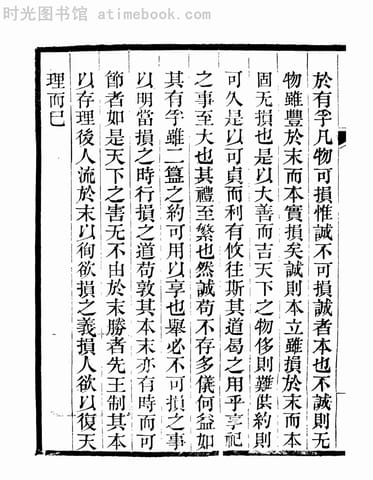 时光图书馆 atimebook.com
於有孚凡物可損惟誠不可損誠者本也不誠則无
物雖豐於末而本實損矣誠則本立雖損於末而本
固无損也是以大善而吉天下之物侈則難供約則
可久是以可貞而利有攸往斯其道曷之用乎享祀
之事至大也其禮至繁也然誠苟不存多儀何益如
其有孚雖二簋之約可用以享也舉必不可損之事
以明當損之時行損之道苟敦其本末亦有時而可
節者如是天下之害无不由於末勝者先王制其本
以存理後人流於末以徇欲損之義損人欲以復天
理而已